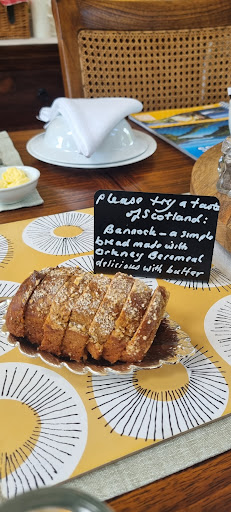 Please try a taste
of Scotland:
Bannock - a simple
bread made with
Orkney Beremeal
delicious with butter